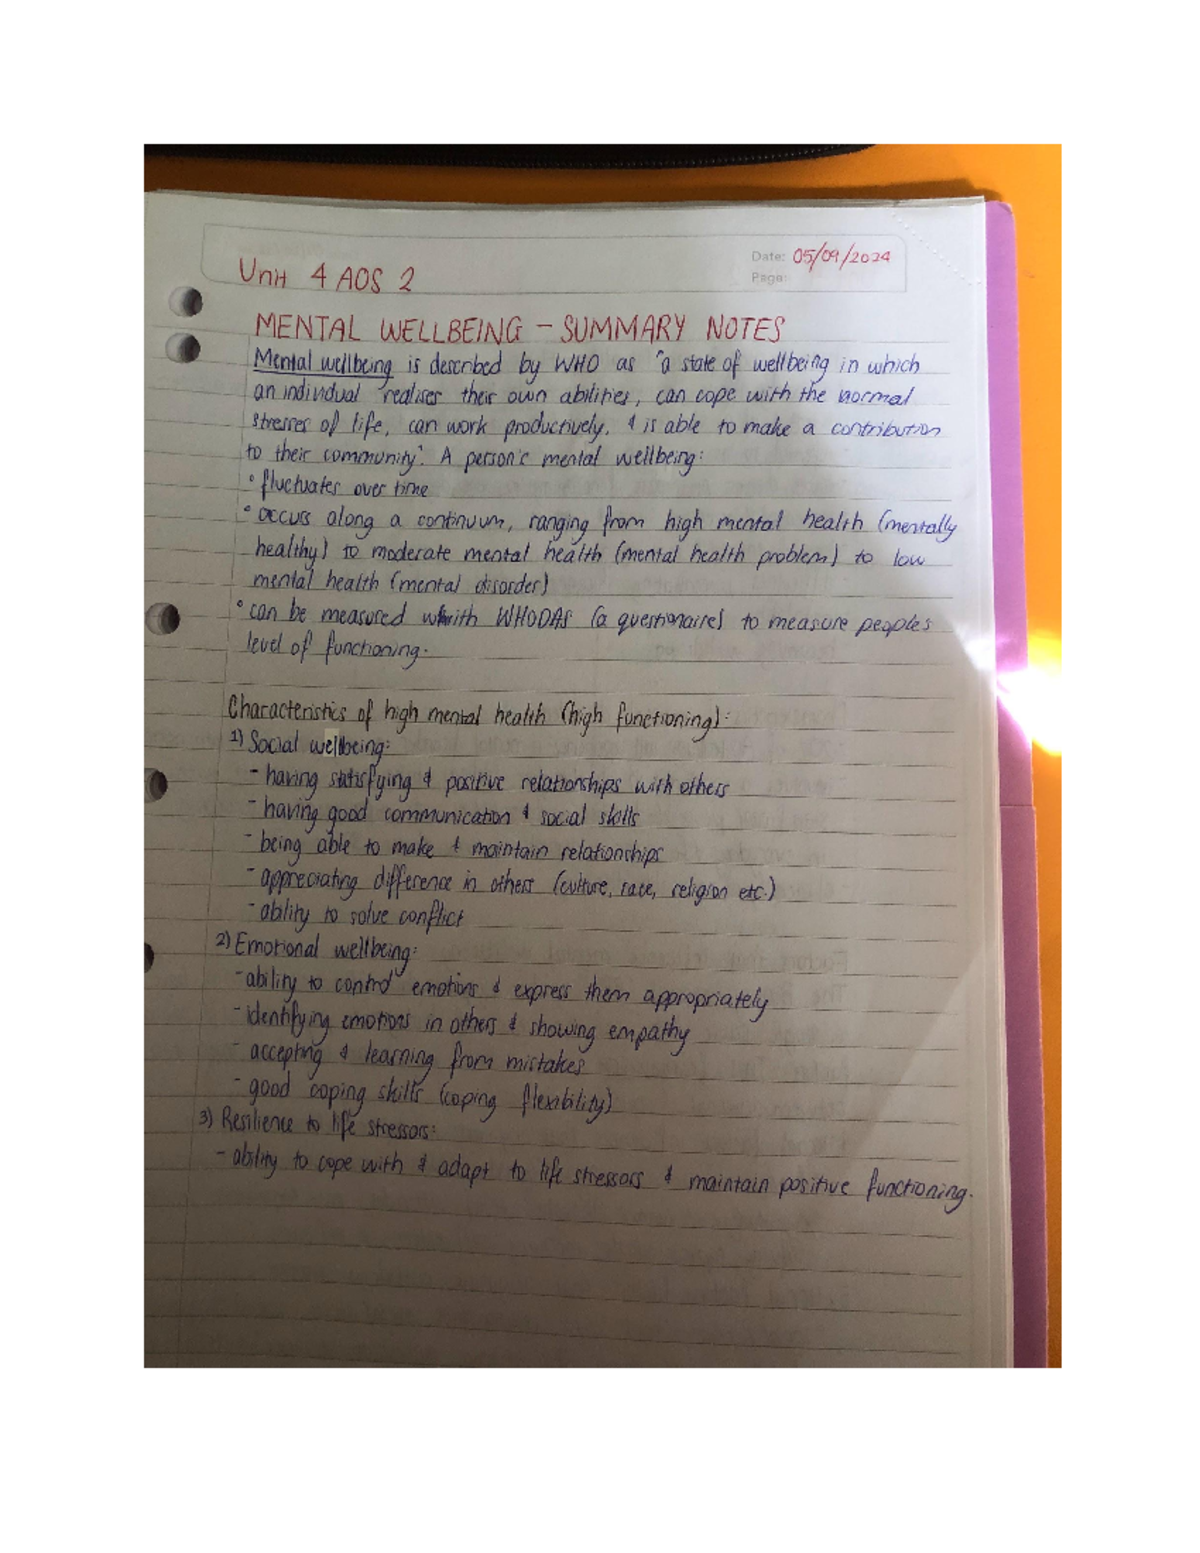 Unit 4 AOS 2
Date: 05/09/2024
Page:
MENTAL WELLBEING – SUMMARY NOTES
Mental wellbeing is described by WHO as "a state of wellbeing in which
an individual realises their own abilities, can cope with the normal
stresses of life, can work productively, & is able to make a contribution
to their community". A person's mental wellbeing:
• fluctuates over time
• occurs along a continuum, ranging from high mental health (mentally
healthy) to moderate mental health (mental health problem) to low
mental health (mental disorder)
• can be measured with WHODAS (a questionaire) to measure people's
level of functioning.
Characteristics of high mental health (high functioning):
1) Social wellbeing:
- having satisfying & positive relationships with others
- having good communication & social skills
- being able to make & maintain relationships
- appreciating difference in others (culture, race, religion etc.)
- ability to solve conflict
2) Emotional wellbeing:
- ability to control emotions & express them appropriately
- identifying emotions in others & showing empathy
- accepting & learning from mistakes
- good coping skills (coping flexibility)
3) Resilience to life stressors:
- ability to cope with & adapt to life stressors & maintain positive functioning.